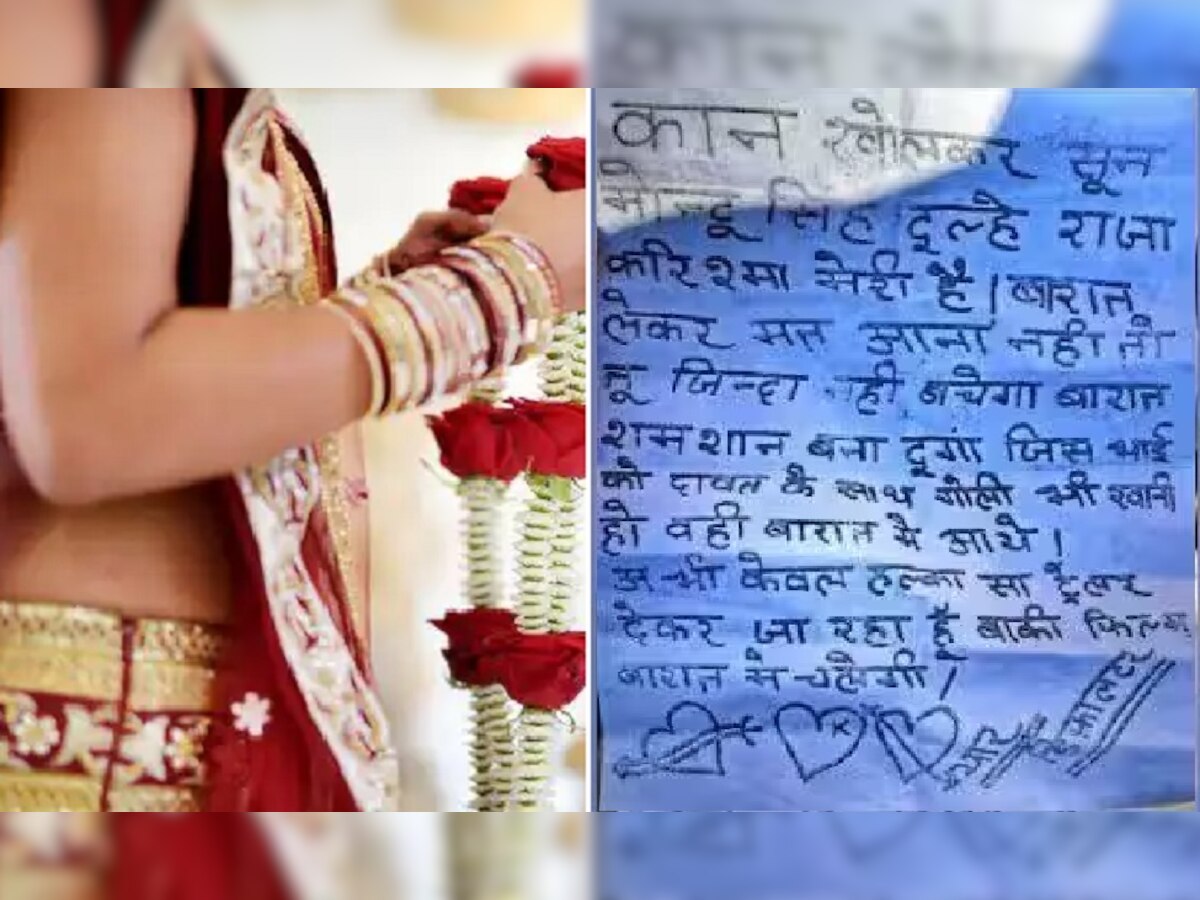 कान खोलकर सून
मोन्टू सिंह दूल्हे राजा
करिश्मा मेरी है। बारात
लेकर मत आना नही तो
तू जिन्दा नही बचेगा बारात
शमशान बना दूगां जिस भाई
को दावत के साथ गोली भी खानी
हो वही बारात मै आये।
अभी केवल हल्का सा ट्रेलर
देकर जा रहा हूँ बाकी फिल्म
बारात मे चलेगी/
K